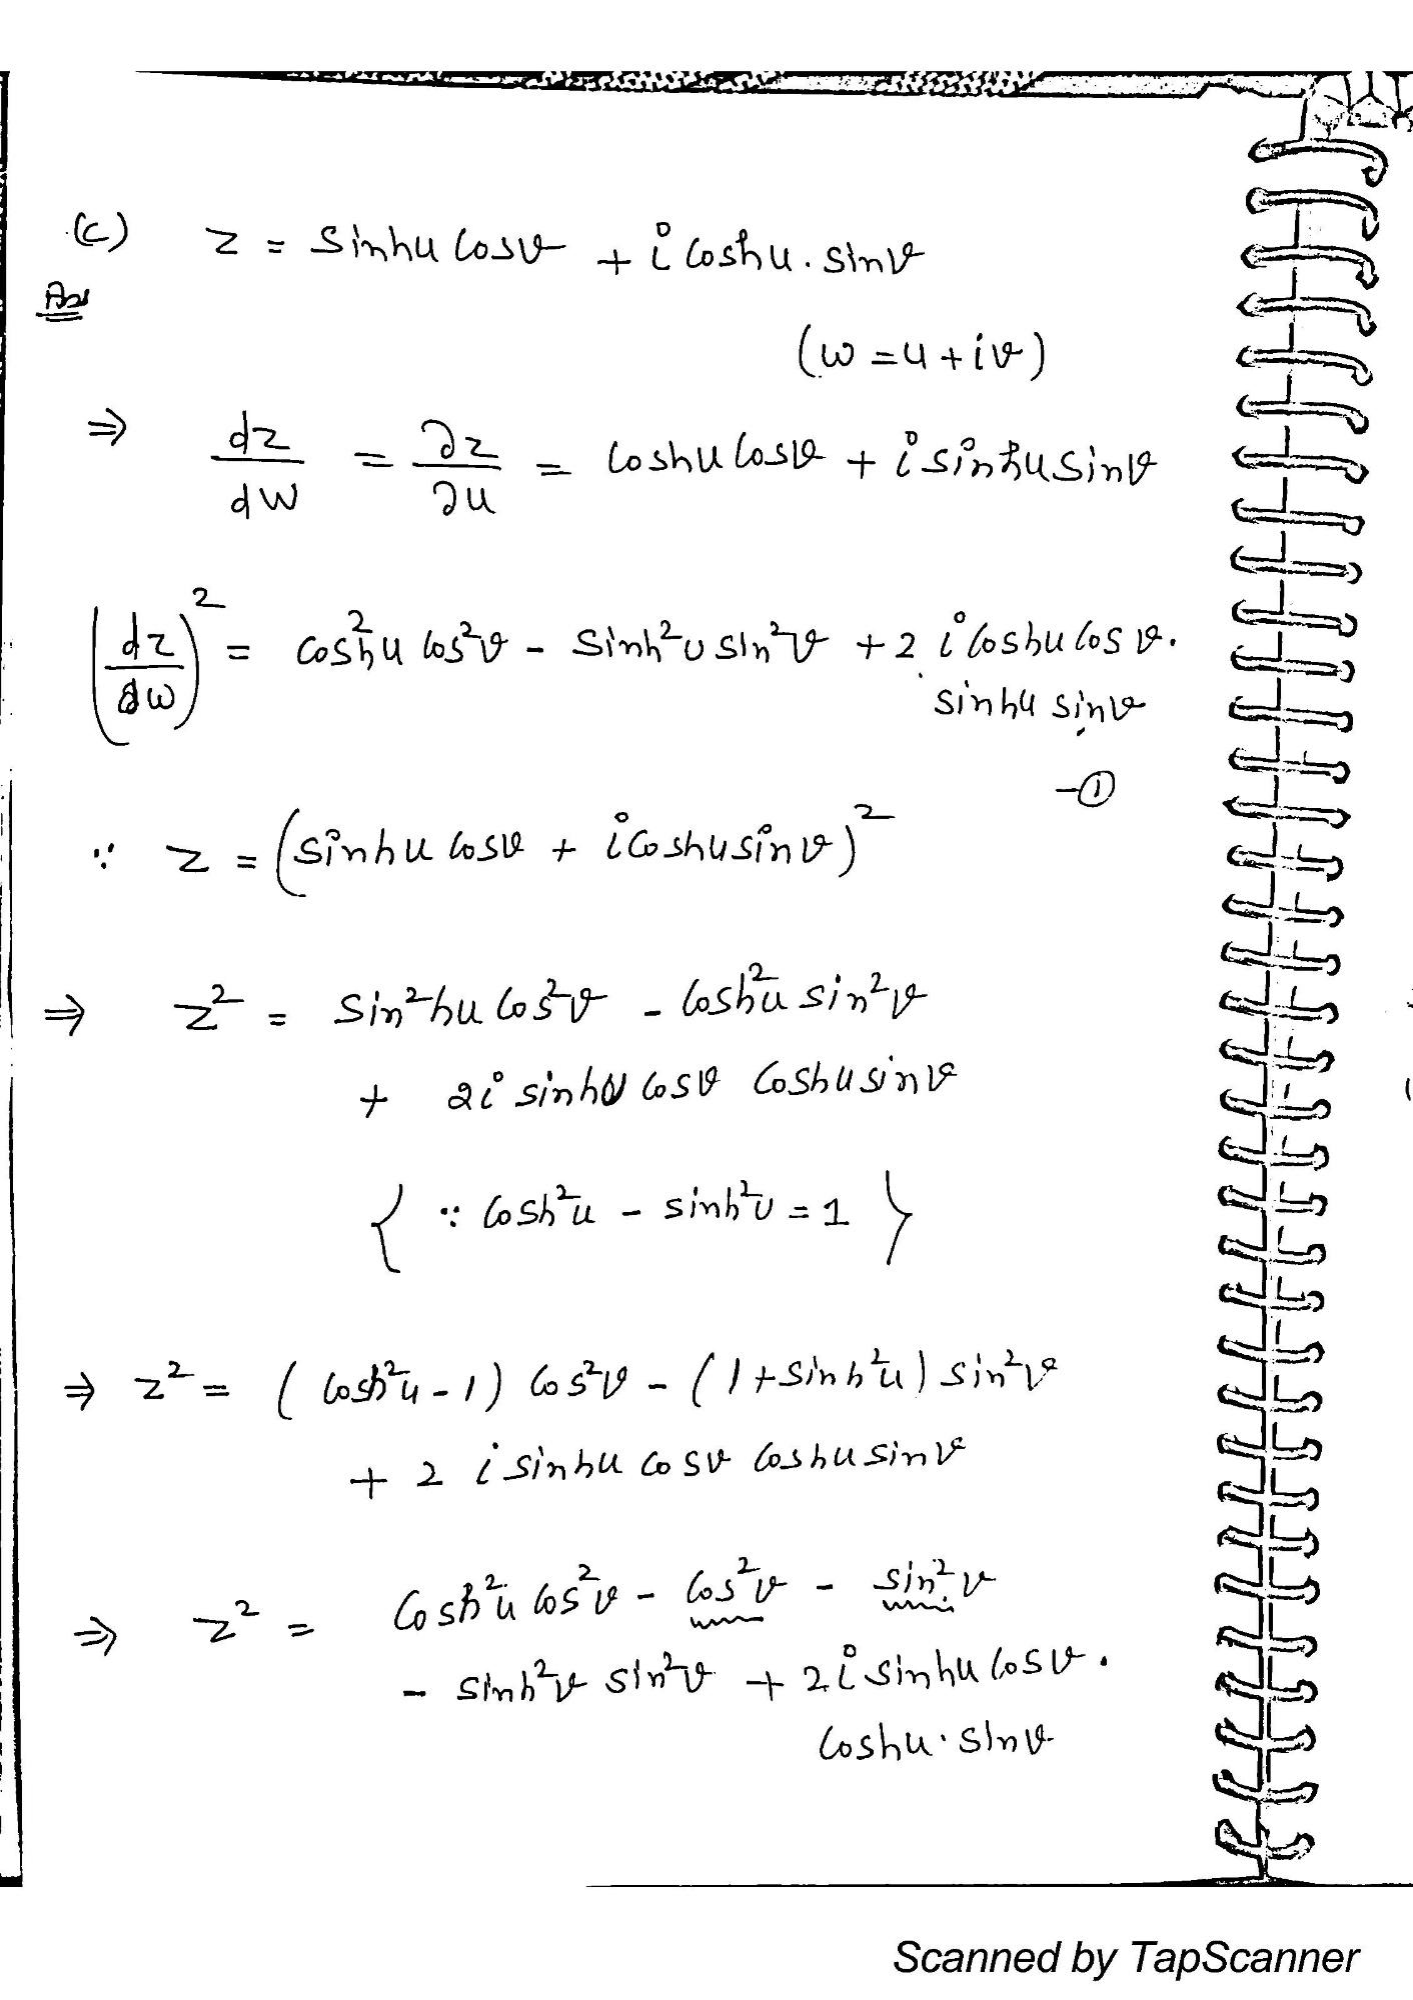 (c) z = sinhu cosv + i coshu. sinv
Ans
(w = u + iv)
⇒ dz/dw = ∂z/∂u = coshu cosv + i sinhu sinv
(dz/dw)² = cosh²u cos²v - sinh²u sin²v + 2 i coshu cos v.
sinhu sinv
-①
∵ z = (sinhu cosv + i coshu sinv)²
⇒ z² = sin²hu cos²v - cosh²u sin²v
+ 2i sinhu cosv coshu sinv
{ ∵ cosh²u - sinh²u = 1 }
⇒ z² = (cosh²u - 1) cos²v - (1 + sinh²u) sin²v
+ 2 i sinhu cosv coshu sinv
⇒ z² = cosh²u cos²v - cos²v - sin²v
- sinh²v sin²v + 2i sinhu cosv.
coshu. sinv
Scanned by TapScanner